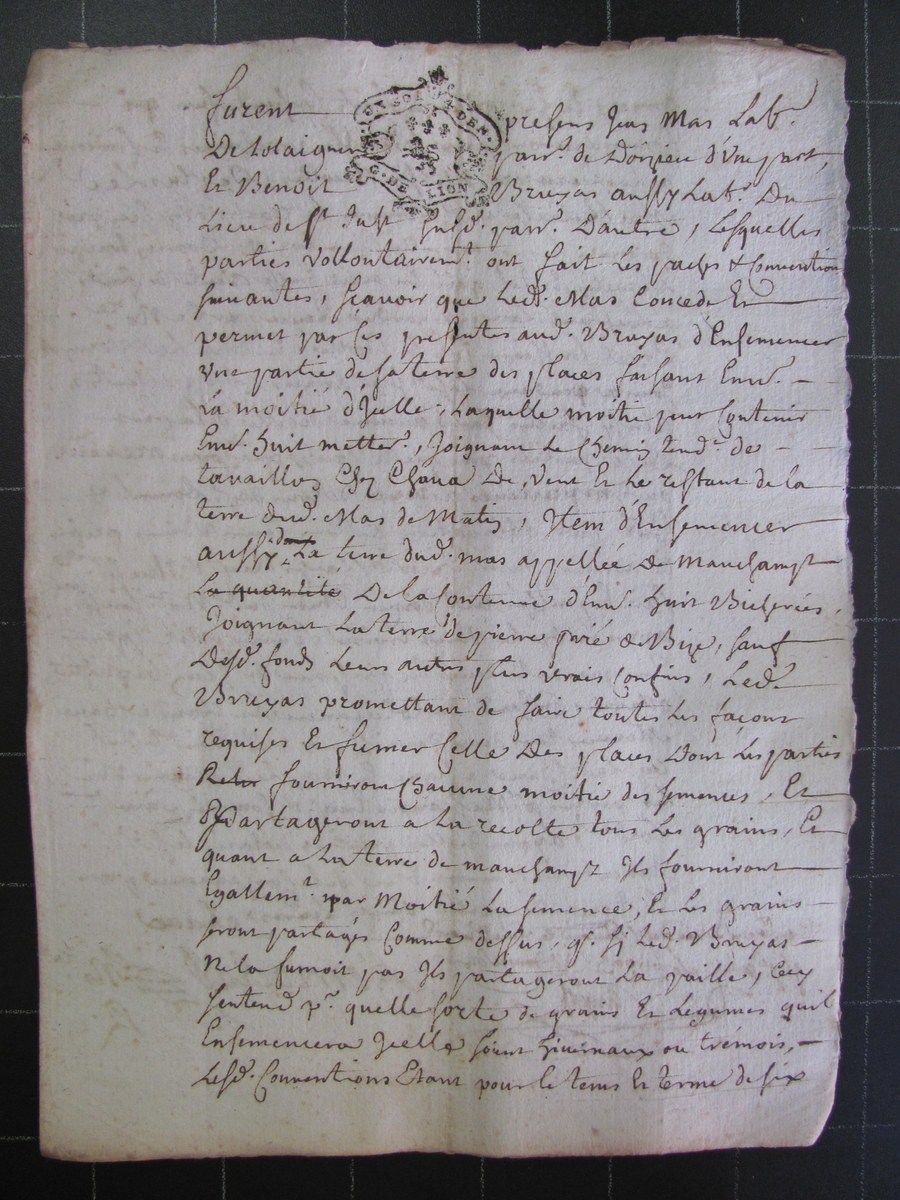 furent presens Jean Mas Labr.
De Lolaigner parr.e de Dorzieu d'Une part,
UN SOL 4 DEN.
G. DE LION
Et Benoit Bruyas aussy Labr. Du
Lieu de st. Just susd. parr.e D'autre, Lesquelles
parties vollontairemt. ont fait Les pactes & Conventions
suivantes, scavoir que Led. Mas Concede Et
permet par ces presentes aud. Bruyas d'Ensemencer
vne partie de sa terre des places faisant Env.
La moitié d'Jcelle, Laquelle moitié peut Contenir
Env. huit metter., Joignant Le Chemin tend.t de
tavaillon Chez Chava De vent Et Le restant de La
terre dud. Mas de Matin, Jtem d'Ensemencer
aussy La terre dud. mas appellée De Manchampt
La quantité De La Contenue d'Env. huit Bicherées,
Joignant La terre de pierre de Bize, sauf
Desd. fonds Leurs autres plus vrais Confins, Led.
Bruyas promettant de faire toutes Les façons
requises Et fumer Celle Des places Dont Les parties
fourniront Chacune moitié des semences, Et
partageront a La recolte tous Les grains, Et
quant a La terre de manchampt Jls fourniront
Egallemt. par Moitié La semence, Et Les grains
seront partagés Comme dessus, Led. Bruyas
Ne La fumoit pas Jls partageront La paille, Cecy
sentend pr. quelle sorte de grains Et Legumes quil
Ensemencera Jcelle soint hivernaux ou trémois,
Lesd. Conventions Etant pour le tems Et terme de six